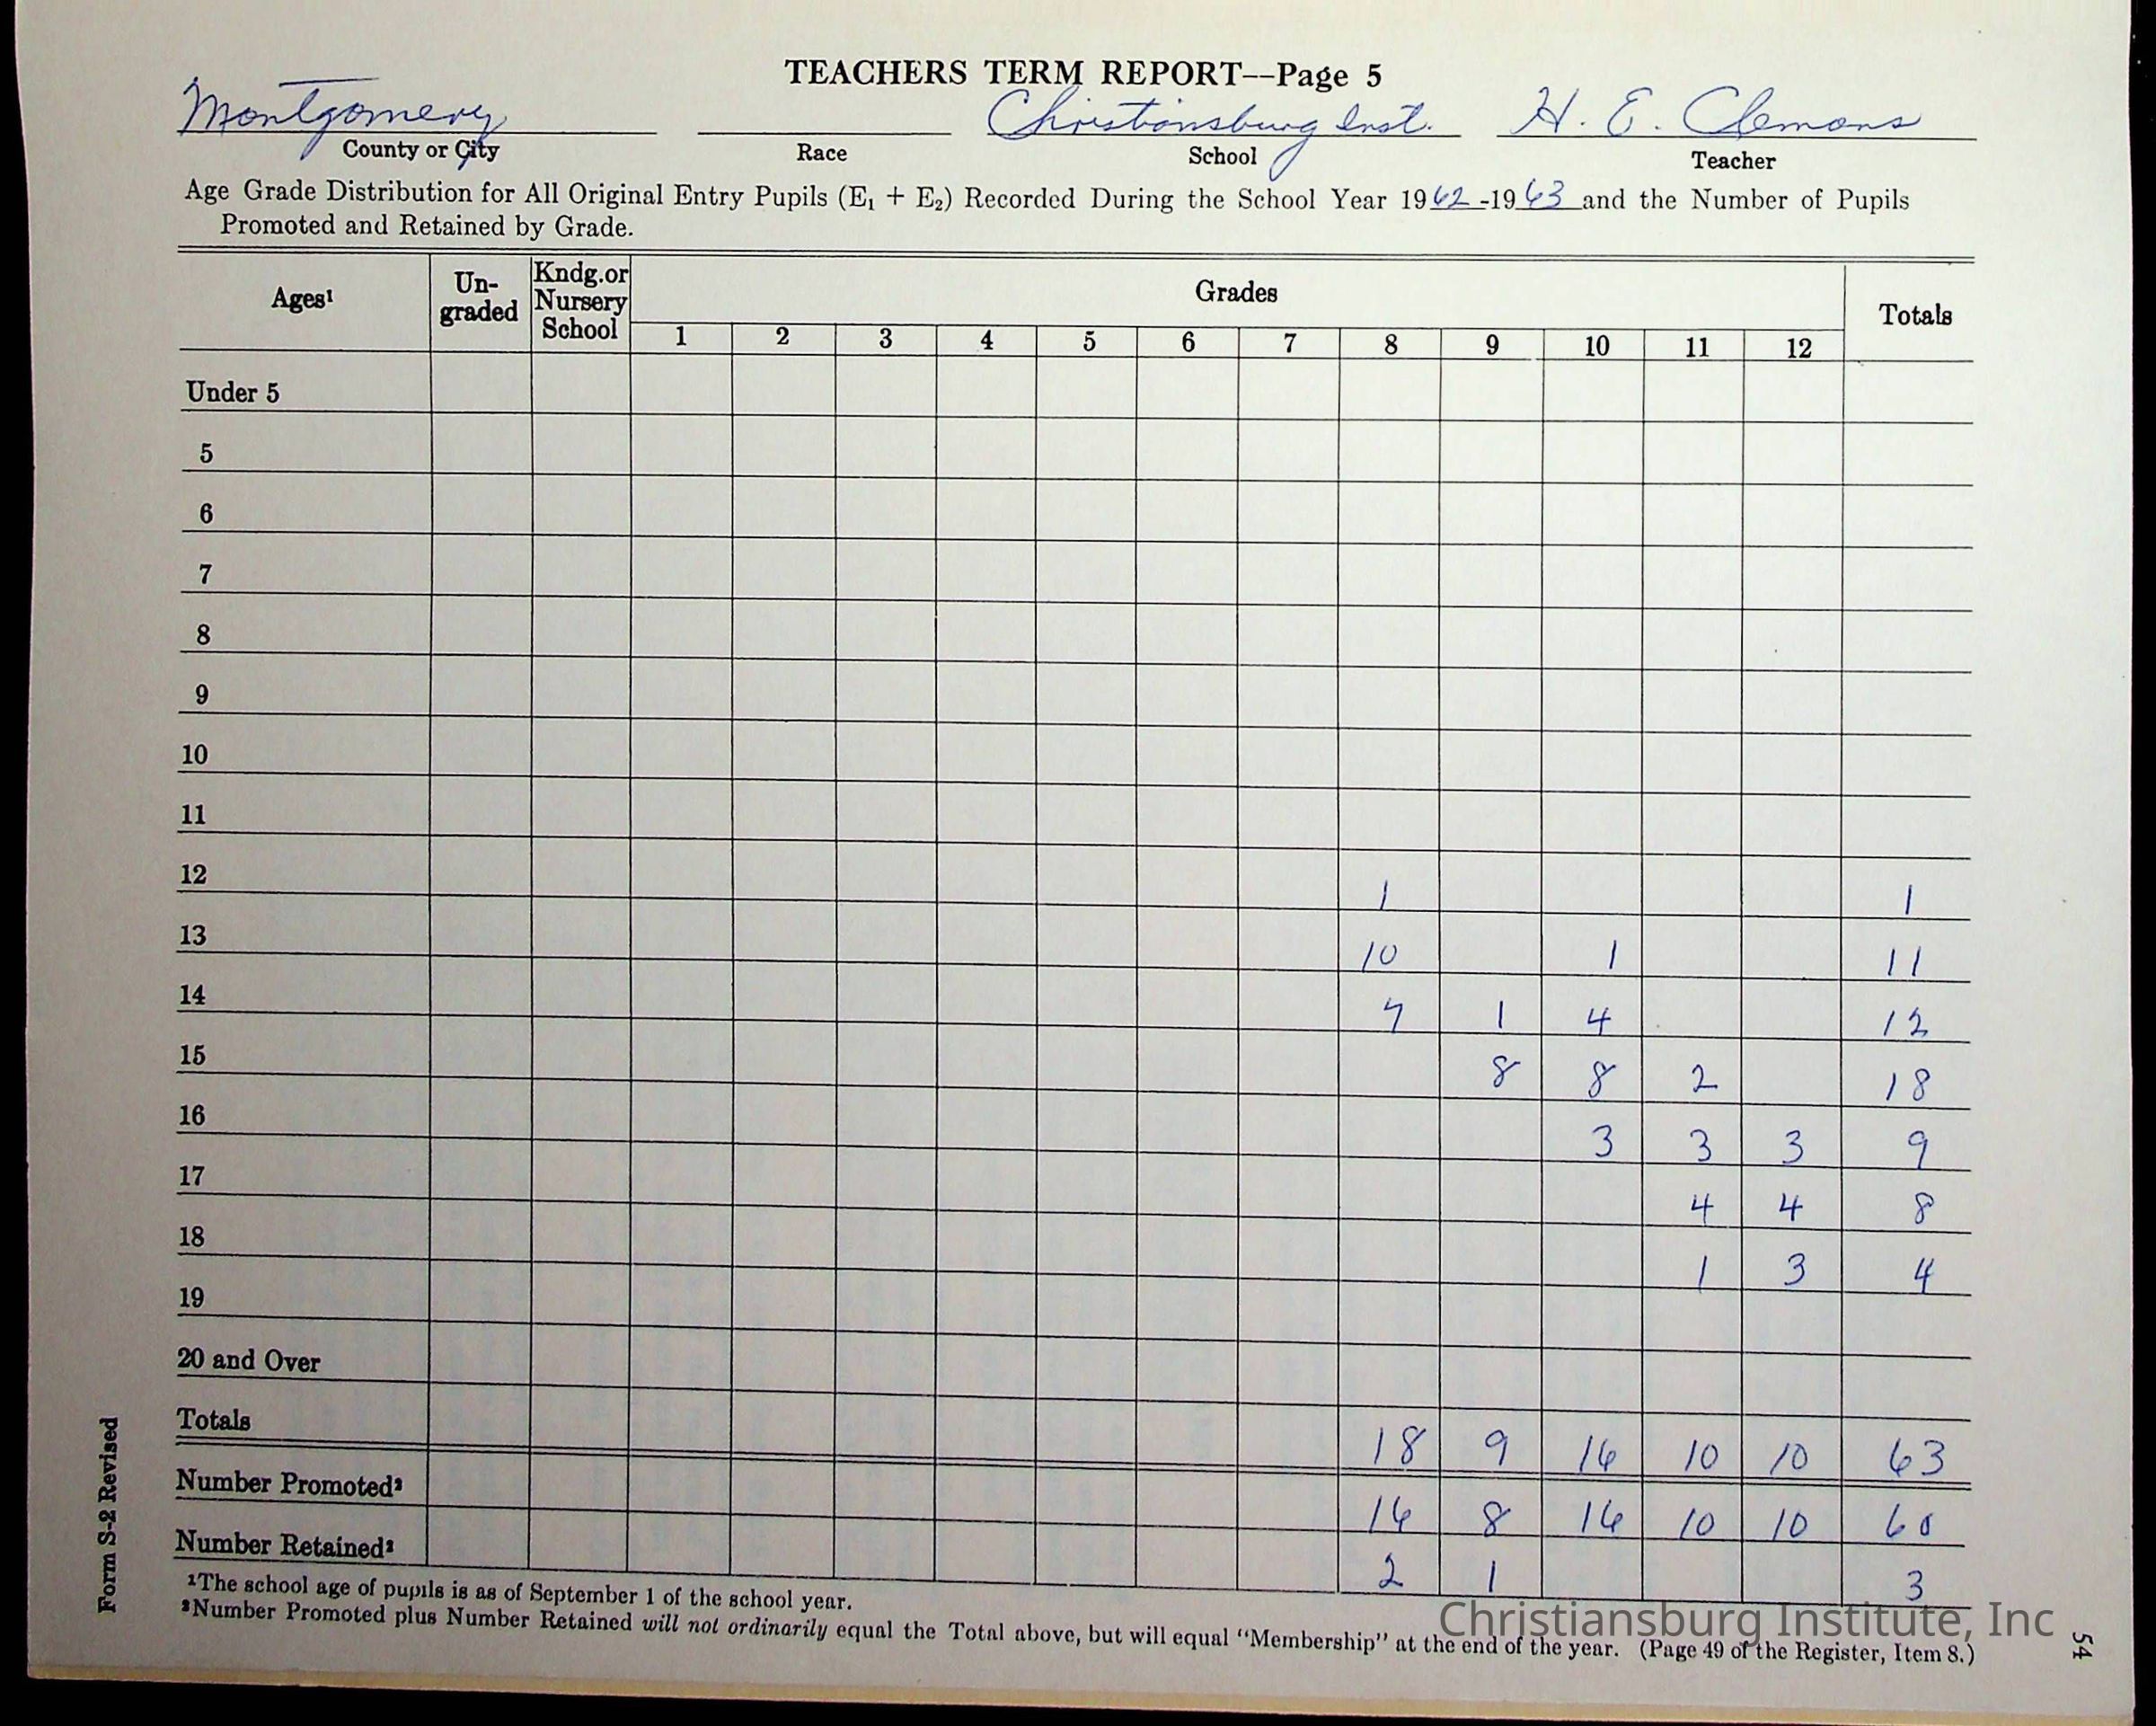 TEACHERS TERM REPORT--Page 5
Montgomery Christiansburg Inst. H. E. Clemons
County or City Race School Teacher
Age Grade Distribution for All Original Entry Pupils (E₁ + E₂) Recorded During the School Year 1962-1963 and the Number of Pupils
Promoted and Retained by Grade.
Ages¹ Un-graded Kndg.or Nursery School Grades Totals
1 2 3 4 5 6 7 8 9 10 11 12
Under 5
5
6
7
8
9
10
11
12 1 1
13 10 1 11
14 7 1 4 12
15 8 8 2 18
16 3 3 3 9
17 4 4 8
18 1 3 4
19
20 and Over
Totals 18 9 16 10 10 63
Number Promoted² 16 8 16 10 10 60
Number Retained² 2 1 3
¹The school age of pupils is as of September 1 of the school year.
²Number Promoted plus Number Retained will not ordinarily equal the Total above, but will equal "Membership" at the end of the year. (Page 49 of the Register, Item 8.)
Form S-2 Revised
54
Christiansburg Institute, Inc